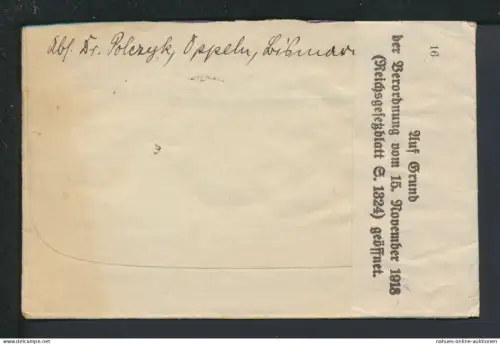 Abs. Dr. Polczyk, Oppeln, Bismar
16
Auf Grund
der Verordnung vom 15. November 1918
(Reichsgesetzblatt S. 1324) geöffnet.
nahues-online-auktionen